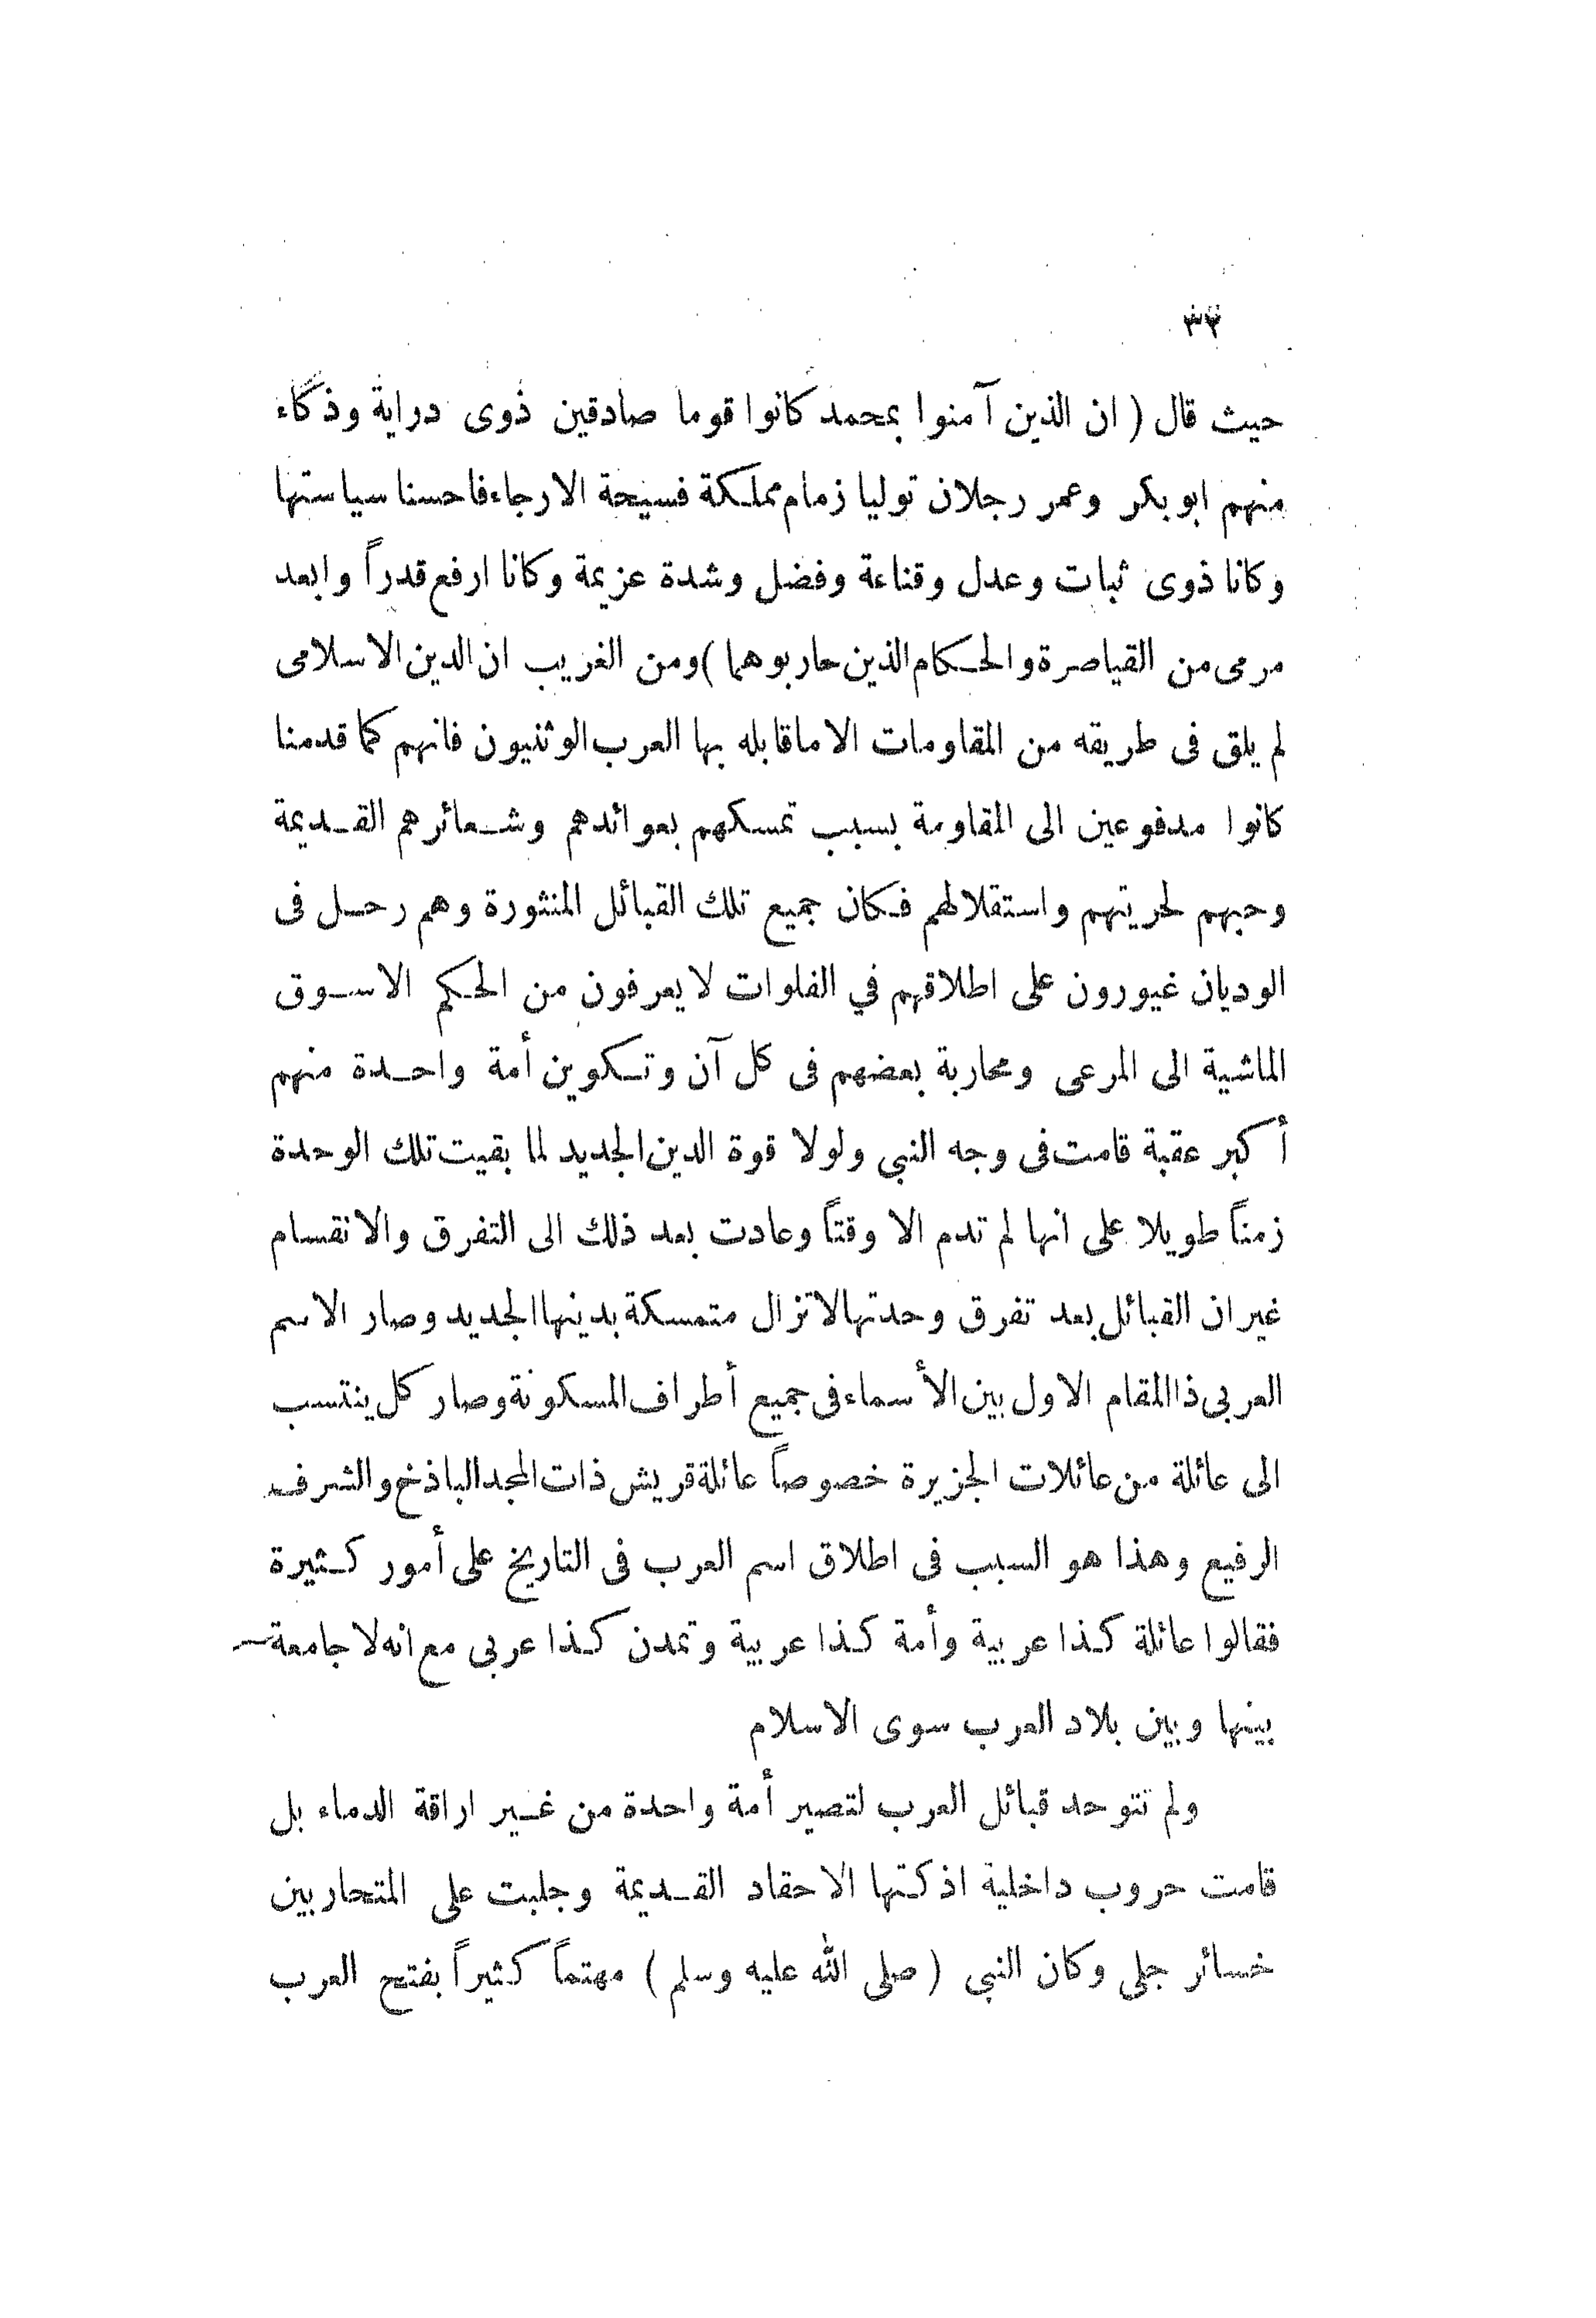 ٣٢
حيث قال ( ان الذين آمنوا بمحمد كانوا قوما صادقين ذوى دراية وذكاء
منهم ابو بكر وعمر رجلان توليا زمام مملكة فسيحة الارجاء فاحسنا سياستها
وكانا ذوى ثبات وعدل وقناعة وفضل وشدة عزيمة وكانا ارفع قدراً وابعد
مرمى من القياصرة والحكام الذين حاربوهما ) ومن الغريب ان الدين الاسلامى
لم يلق فى طريقه من المقاومات الا ماقابله بها العرب الوثنيون فانهم كما قدمنا
كانوا مدفوعين الى المقاومة بسبب تمسكهم بعوائدهم وشعائرهم القديمة
وحبهم لحريتهم واستقلالهم فكان جميع تلك القبائل المنثورة وهم رحل فى
الوديان غيورون على اطلاقهم في الفلوات لا يعرفون من الحكم الا سوق
الماشية الى المرعى ومحاربة بعضهم فى كل آن وتكوين أمة واحدة منهم
أكبر عقبة قامت فى وجه النبى ولولا قوة الدين الجديد لما بقيت تلك الوحدة
زمناً طويلا على انها لم تدم الا وقتاً وعادت بعد ذلك الى التفرق والانقسام
غير ان القبائل بعد تفرق وحدتها لا تزال متمسكة بدينها الجديد وصار الاسم
العربى ذا المقام الاول بين الأسماء فى جميع أطراف المسكونة وصار كل ينتسب
الى عائلة من عائلات الجزيرة خصوصاً عائلة قريش ذات المجد الباذخ والشرف
الرفيع وهذا هو السبب فى اطلاق اسم العرب فى التاريخ على أمور كثيرة
فقالوا عائلة كذا عربية وأمة كذا عربية وتمدن كذا عربى مع انه لا جامعة
بينها وبين بلاد العرب سوى الاسلام
ولم تتوحد قبائل العرب لتصير أمة واحدة من غير اراقة الدماء بل
قامت حروب داخلية اذكتها الاحقاد القديمة وجلبت على المتحاربين
خسائر جلى وكان النبى ( صلى الله عليه وسلم ) مهتماً كثيراً بفتح العرب